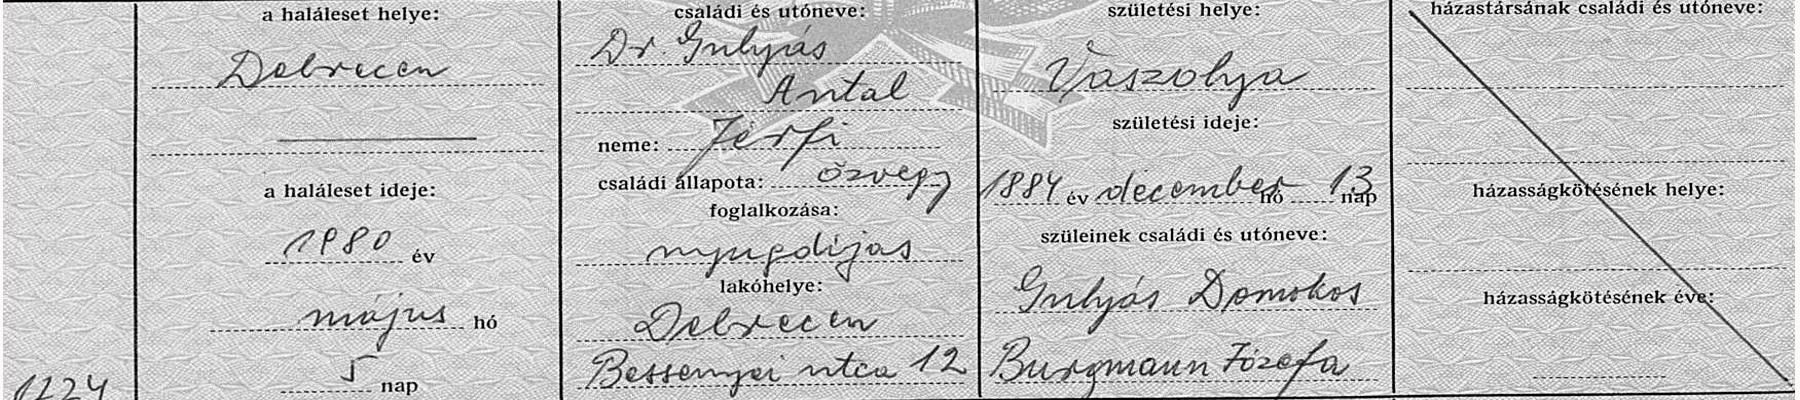 a haláleset helye:
Debrecen
a haláleset ideje:
1980 év
május hó
5 nap
családi és utóneve:
Dr. Gulyás
Antal
neme: férfi
családi állapota: özvegy
foglalkozása:
nyugdíjas
lakóhelye:
Debrecen
Bessenyei utca 12
születési helye:
Vaszolya
születési ideje:
1884 év december hó 13 nap
szüleinek családi és utóneve:
Gulyás Domokos
Burgmann Józefa
házastársának családi és utóneve:
házasságkötésének helye:
házasságkötésének éve: